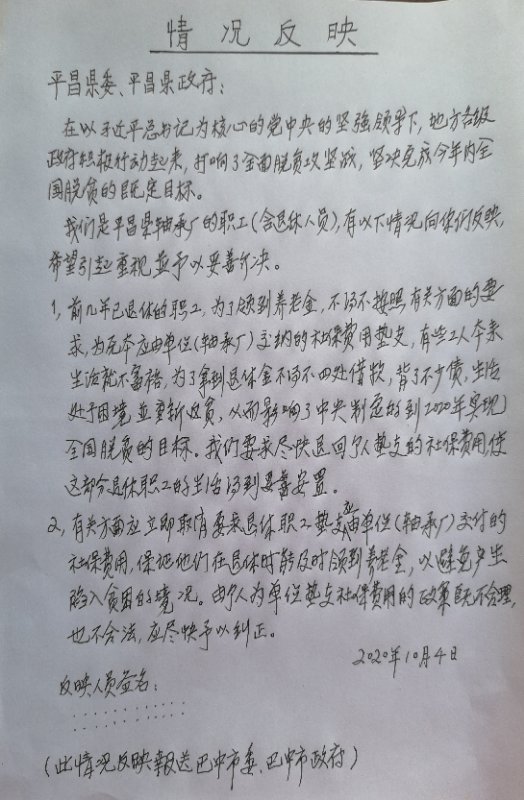 情况反映
平昌県委、平昌県政府：
在以习近平总书记为核心的党中央的坚强领导下，地方各级
政府积极行动起来，打响了全面脱贫攻坚战，坚决完成今年内全
国脱贫的既定目标。
我们是平昌県轴承厂的职工（含退休人员），有以下情况向你们反映，
希望引起重视並予以妥善介决。
1，前几年已退休的职工，为了领到养老金，不得不按照有关方面的要
求，为元本应由单位（轴承厂）交纳的社保费用垫支，有些工人本来
生活就不富裕，为了拿到退休金不得不四处借款，背了不少债，生活
处于困境並重新返贫，从而影响了中央制定的到2020年实现
全国脱贫的目标。我们要求尽快退回个人垫支的社保费用，使
这部分退休职工的生活得到妥善安置。
2，有关方面应立即取消要求退休职工垫支应由单位（轴承厂）交付的
社保费用，保证他们在退休时能及时领到养老金，以避免产生
陷入贫困的境况。由个人为单位垫支社保费用的政策既不合理，
也不合法，应尽快予以纠正。
2020年10月4日
反映人员签名：
（此情况反映報送巴中市委、巴中市政府）